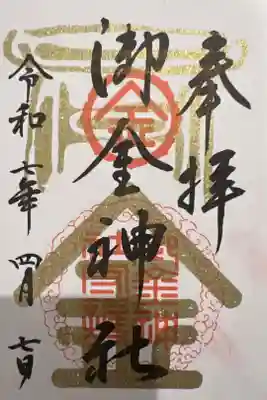 奉拝
御金神社
令和七年四月七日
金